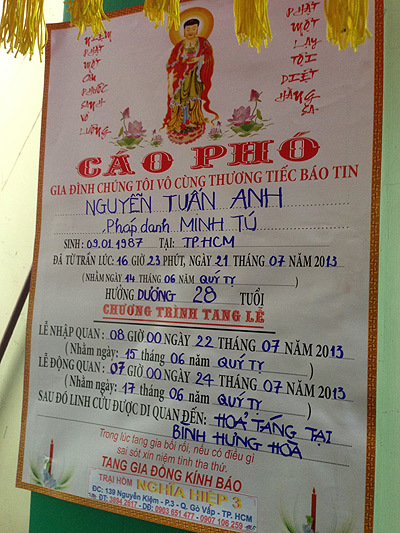 NIỆM
PHẬT
MỘT
CÂU
PHƯỚC
SANH
VÔ
LƯỢNG
PHẬT
MỘT
LẠY
TỘI
DIỆT
HẰNG
SA
CÁO PHÓ
GIA ĐÌNH CHÚNG TÔI VÔ CÙNG THƯƠNG TIẾC BÁO TIN
NGUYỄN TUẤN ANH
Pháp danh MINH TÚ
SINH : 09.01.1987 TẠI: TP.HCM
ĐÃ TỪ TRẦN LÚC: 16 GIỜ 23 PHÚT, NGÀY 21 THÁNG 07 NĂM 2013
(NHẰM NGÀY 14 THÁNG 06 NĂM QUÝ TỴ)
HƯỞNG DƯƠNG 28 TUỔI
CHƯƠNG TRÌNH TANG LỄ
LỄ NHẬP QUAN : 08 GIỜ 00 NGÀY 22 THÁNG 07 NĂM 2013
( Nhằm ngày: 15 tháng 06 năm QUÝ TỴ )
LỄ ĐỘNG QUAN : 07 GIỜ 00 NGÀY 24 THÁNG 07 NĂM 2013
( Nhằm ngày: 17 tháng 06 năm QUÝ TỴ )
SAU ĐÓ LINH CỬU ĐƯỢC DI QUAN ĐẾN: HOẢ TÁNG TẠI
BÌNH HƯNG HOÀ
Trong lúc tang gia bối rối, nếu có điều gì
sai sót xin niệm tình tha thứ.
TANG GIA ĐỒNG KÍNH BÁO
TRẠI HÒM NGHĨA HIỆP 3
ĐC: 139 Nguyễn Kiệm - P.3 - Q. Gò Vấp - TP. HCM
ĐT: 3894 2617 - DĐ: 0903 651 477 - 0907 106 259